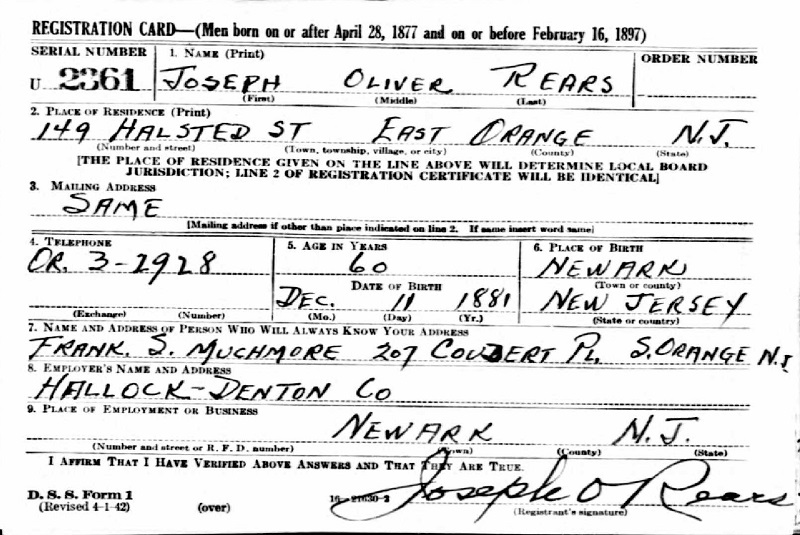 REGISTRATION CARD—(Men born on or after April 28, 1877 and on or before February 16, 1897)
SERIAL NUMBER 1. NAME (Print) ORDER NUMBER
U 2361 JOSEPH OLIVER REARS
(First) (Middle) (Last)
2. PLACE OF RESIDENCE (Print)
149 HALSTED ST EAST ORANGE N.J.
(Number and street) (Town, township, village, or city) (County) (State)
[THE PLACE OF RESIDENCE GIVEN ON THE LINE ABOVE WILL DETERMINE LOCAL BOARD
JURISDICTION; LINE 2 OF REGISTRATION CERTIFICATE WILL BE IDENTICAL]
3. MAILING ADDRESS
SAME
[Mailing address if other than place indicated on line 2. If same insert word same]
4. TELEPHONE 5. AGE IN YEARS 6. PLACE OF BIRTH
OR. 3-2928 60 NEWARK
DATE OF BIRTH (Town or county)
DEC. 11 1881 NEW JERSEY
(Exchange) (Number) (Mo.) (Day) (Yr.) (State or country)
7. NAME AND ADDRESS OF PERSON WHO WILL ALWAYS KNOW YOUR ADDRESS
FRANK. S. MUCHMORE 207 PL. S. ORANGE N.J
8. EMPLOYER'S NAME AND ADDRESS
HALLOCK-DENTON CO
9. PLACE OF EMPLOYMENT OR BUSINESS
NEWARK N.J.
(Number and street or R. F. D. number) (Town) (County) (State)
I AFFIRM THAT I HAVE VERIFIED ABOVE ANSWERS AND THAT THEY ARE TRUE.
D. S. S. Form 1
(Revised 4-1-42) (over) 16—21630-2 Joseph O Rears
(Registrant's signature)